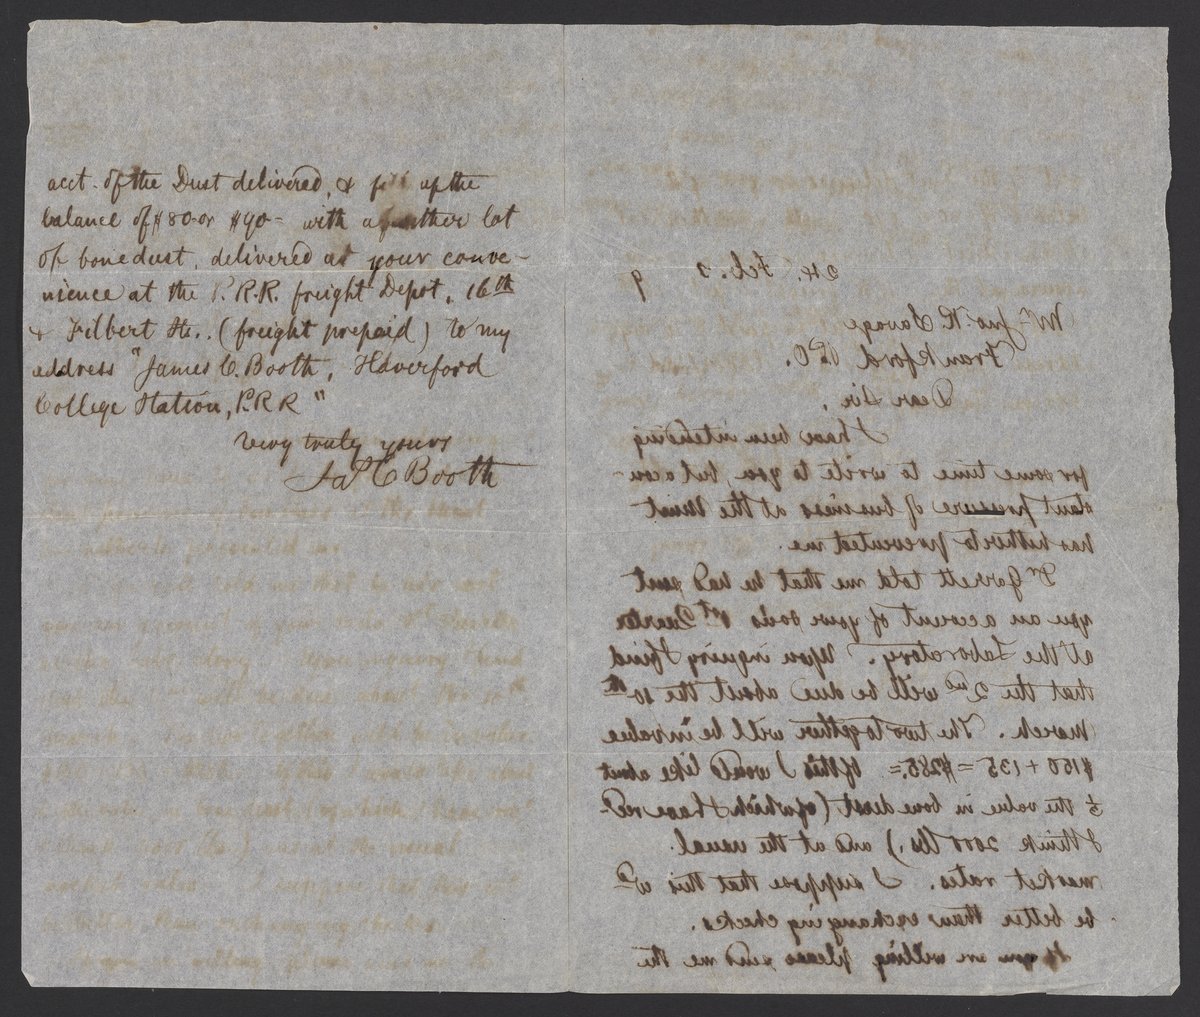 acct. of the Dust delivered, & fill up the
balance of $80 or $90 - with a further lot
of bonedust, delivered at your conve-
nience at the P.R.R. freight Depot, 16th
& Filbert Sts., (freight prepaid) to my
address "James C. Booth, Haverford
College Station, P.R R"
Very truly yours
Jas C Booth
Feb.
Mr Jno. R. Savage
Frankford P.O.
Dear Sir,
I have been intending
for some time to write to you, but a con-
stant pressure of business at the Mint
has hitherto prevented me.
Dr Garrett told me that he had sent
you an account of your son's 1st Quarter
at the Laboratory. Upon inquiry I find
that the 2nd will be due about the 10th
March. The two together will be in value
$150 + 135 = $285. = Of this I would like about
½ the value in bone dust (of which I have recd
I think 2000 lbs.) and at the usual
market rates. I suppose that this wd
be better than exchanging checks.
If you are willing please send me the